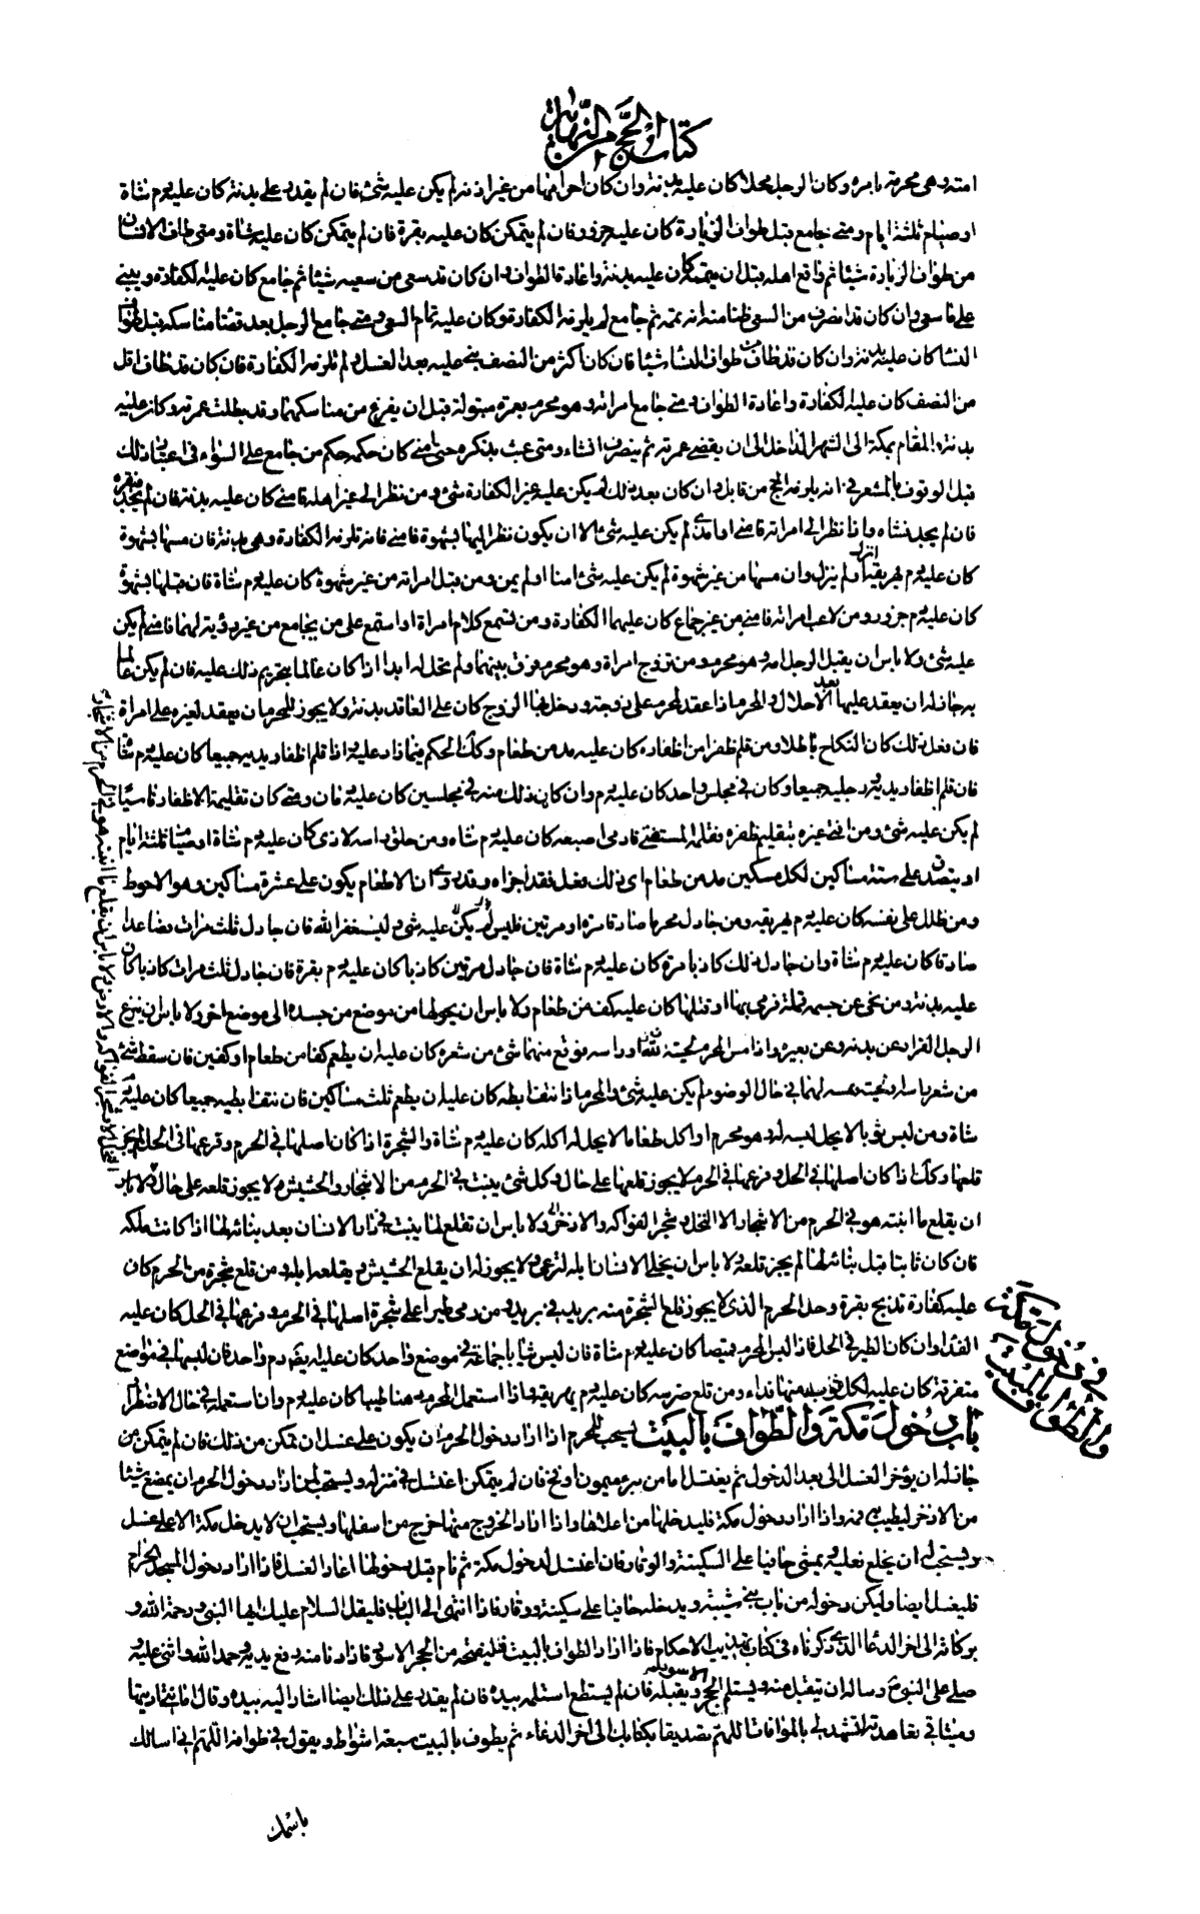 كتاب الحج من النهاية
امته وهى محرمة بامره وكان الرجل محلا كان عليه بدنة وان كان احرامها من غير اذنه لم يكن عليه شئ فان لم يقدر على بدنة كان عليه دم شاة
او صيام ثلثة ايام ومتى جامع قبل طواف الزيادة كان عليه جزور فان لم يتمكن كان عليه بقرة فان لم يتمكن كان عليه شاة ومتى طاف الانسان
من طواف الزيادة شيئا ثم واقع اهله قبل ان يتمه كان عليه بدنة واعادة الطواف وان كان قد سعى من سعيه شيئا ثم جامع كان عليه الكفارة ويبنى
على ما سعى وان كان قد انصرف من السعى ظنا منه انه تمه ثم جامع لم يلزمه الكفارة وكان عليه تمام السعى ومتى جامع الرجل بعد قضاء مناسكه قبل طواف
النساء كان عليه بدنة وان كان قد طاف من طواف النساء شيئا فان كان اكثر من النصف بنى عليه بعد الغسل ولم تلزمه الكفارة فان كان قد طاف اقل
من النصف كان عليه الكفارة واعادة الطواف ومتى جامع امراته وهو محرم بعمرة مبتولة قبل ان يفرغ من مناسكها وقد بطلت عمرته وكان عليه
بدنة والمقام بمكة الى الشهر الداخل الى ان يقضى عمرته ثم ينصرف ان شاء ومتى عبث بذكره حتى امنى كان حكمه حكم من جامع على السواء فى اعتبار ذلك
قبل الوقوف بالمشعر فى انه يلزمه الحج من قابل وان كان بعد ذلك لم يكن عليه غير الكفارة شئ ومن نظر الى غير اهله فامنى كان عليه بدنة فان لم يجد فبقرة
فان لم يجد فشاه واذا نظر الى امراته فامنى او امذى لم يكن عليه شئ الا ان يكون نظر اليها بشهوة فامنى فانه تلزمه الكفارة وهى بدنة فان مسها بشهوة
كان عليه دم يهريقه انزل او لم ينزل وان مسها من غير شهوة لم يكن عليه شئ امنا او لم يمن ومن قبل امراته من غير شهوة كان عليه دم شاة فان قبلها بشهوة
كان عليه دم جزور ومن لاعب امراته فامنى من غير جماع كان عليهما الكفارة ومن تسمع كلام امراة او استمع على من يجامع من غير رؤية لهما فامنى لم يكن
عليه شئ ولا باس ان يقبل الرجل امه وهو محرم ومن تزوج امراة وهو محرم فرق بينهما ولم تحل له ابدا اذا كان عالما بتحريم ذلك عليه فان لم يكن عالما
به جاز له ان يعقد عليها بعد الاحلال والمحرم اذا عقد لمحرم على زوجة ودخل بها الزوج كان على العاقد بدنة ولا يجوز للمحرم ان يعقد لغيره على امراة
فان فعل ذلك كان النكاح باطلا ومن قلم ظفرا من اظفاره كان عليه مد من طعام وكذلك الحكم فيما زاد عليه اذا قلم اظفار يديه جميعا كان عليه دم شاة
فان قلم اظفار يديه ورجليه جميعا وكان فى مجلس واحد كان عليه دم وان كان ذلك منه فى مجلسين كان عليه دمان ومتى كان تقليمه الاظفار ناسيا
لم يكن عليه شئ ومن افتى غيره بتقليم ظفره فقلمه المستفتى فادمى اصبعه كان عليه دم شاه ومن حلق راسه لاذى كان عليه دم شاة او صيام ثلثة ايام
او يتصدق على ستة مساكين لكل مسكين مد من طعام اى ذلك فعل فقد اجزاه وقد روى ان الاطعام يكون على عشرة مساكين وهو الاحوط
ومن ظلل على نفسه كان عليه دم يهريقه ومن جادل محرما صادقا مرة او مرتين فليس يكن عليه شئ وليستغفر الله فان جادل ثلث مرات فصاعدا
صادقا كان عليه دم شاة وان جادل ذلك كاذبا مرة كان عليه دم شاة فان جادل مرتين كاذبا كان عليه دم بقرة فان جادل ثلث مرات كاذبا كان
عليه بدنة ومن نحى عن جسمه قملة فرمى بها او قتلها كان عليه كف من طعام ولا باس ان يحولها من موضع من جسده الى موضع اخر ولا باس ان ينزع
الرجل القراد عن بدنه وعن بعيره واذا مس المحرم لحيته او راسه فوقع منهما شئ من شعره كان عليه ان يطعم كفا من طعام او كفين فان سقط شئ
من شعر راسه او لحيته بمسه لهما فى حال الوضوء لم يكن عليه شئ والمحرم اذا نتف ابطه كان عليه ان يطعم ثلث مساكين فان نتف ابطيه جميعا كان عليه دم
شاة ومن لبس ثوبا لا يحل لبسه له وهو محرم او اكل طعاما لا يحل له اكله كان عليه دم شاة والشجرة اذا كان اصلها فى الحرم وفرعها فى الحل لم يجز
قلعها وكذلك اذا كان اصلها فى الحل وفرعها فى الحرم لا يجوز قلعها على حال وكل شئ ينبت فى الحرم من الاشجار والحشيش فلا يجوز قلعه على حال ولا باس
ان يقلع ما انبته هو فى الحرم من الاشجار الا النخل وشجر الفواكه والاذخر ولا باس ان تقلع لما ينبت فى دار الانسان بعد بنائه لها اذا كانت ملكه
فان كان ثابتا قبل بنائه لها لم يجز قلعه ولا باس ان يخلى الانسان ابله لترعى ولا يجوز له ان يقلع الحشيش ويقلعه ابله ومن قلع شجرة من الحرم كان
عليه كفارة تذبح بقرة وحد الحرم الذى لا يجوز قلع الشجرة منه بريد فى بريد ومن رمى طيرا على شجرة اصلها فى الحرم وفرعها فى الحل كان عليه
الفداء وان كان الطير فى الحل فاذا لبس المحرم قميصا كان عليه دم شاة فان لبس ثيابا جماعة فى موضع واحد كان عليه ايضا دم واحد فان لبسها فى مواضع
متفرقة كان عليه لكل ثوب منها فداء ومن قلع ضرسه كان عليه دم يهريقه واذا استعمل المحرم دهنا طيبا كان عليه دم وان استعمله فى حال الاضطرار
باب دخول مكة والطواف بالبيت يستحب للمحرم اذا اراد دخول الحرم ان يكون على غسل ان تمكن من ذلك فان لم يتمكن من
جاز له ان يؤخر الغسل الى بعد الدخول ثم يغتسل اما من بير ميمون او فخ فان لم يتمكن اغتسل فى منزله ويستحب لمن اراد دخول الحرم ان يمضغ شيئا
من الاذخر ليطيب به فمه واذا اراد دخول مكة فليدخلها من اعلاها واذا اراد الخروج منها خرج من اسفلها ويستحب ان لا يدخل مكة الا على غسل
ويستحب له ان يخلع نعليه ويمشى حافيا على السكينة والوقار فان اغتسل لدخول مكة ثم نام قبل دخولها اعاد الغسل فاذا اراد دخول المسجد الحرام
فليغسل ايضا وليكن دخوله من باب بنى شيبة ويدخله حافيا على سكينة ووقار فاذا انتهى الى الباب فليقل السلام عليك ايها النبى ورحمة الله و
بركاته الى اخر الدعا الذى ذكرناه فى كتاب تهذيب الاحكام فاذا اراد الطواف بالبيت فليفتتحه من الحجر الاسود فاذا دنا منه رفع يديه وحمد الله واثنى عليه و
صلى على النبى ص وساله ان يتقبل منه ويستلم الحجر الاسود ويقبله فان لم يستطع استلمه بيده فان لم يقدر على ذلك ايضا اشار اليه بيده وقال امانتى اديتها
وميثاقى تعاهدته لتشهد لى بالموافاة اللهم تصديقا بكتابك الى اخر الدعاء ثم يطوف بالبيت سبعة اشواط ويقول فى طوافه اللهم انى اسالك
باسمك
فى دخول مكة
والطواف بالبيت